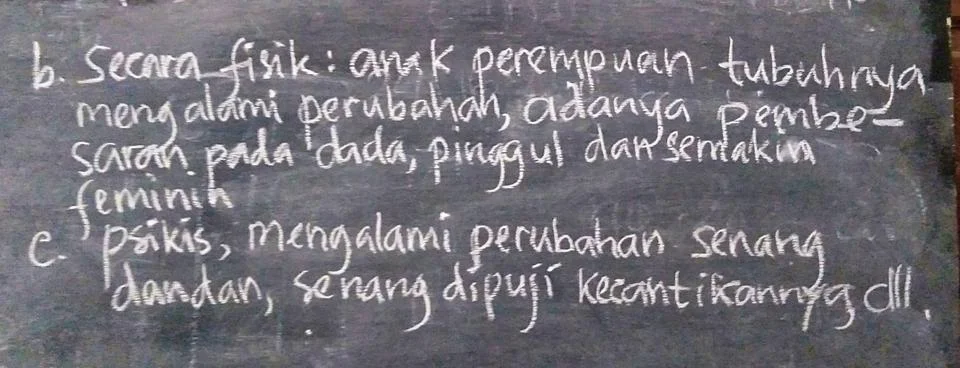 b. Secara fisik: anak perempuan tubuhnya
mengalami perubahan, adanya pembe-
saran pada dada, pinggul dan semakin
feminin
c. psikis, mengalami perubahan senang
dandan, senang dipuji kecantikannya, dll.